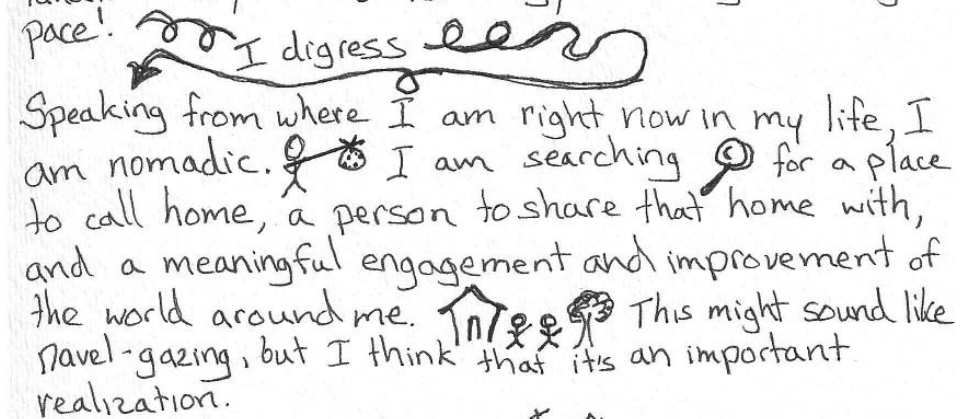 pace!
I digress
Speaking from where I am right now in my life, I
am nomadic. I am searching for a place
to call home, a person to share that home with,
and a meaningful engagement and improvement of
the world around me. This might sound like
navel-gazing, but I think that it's an important
realization.